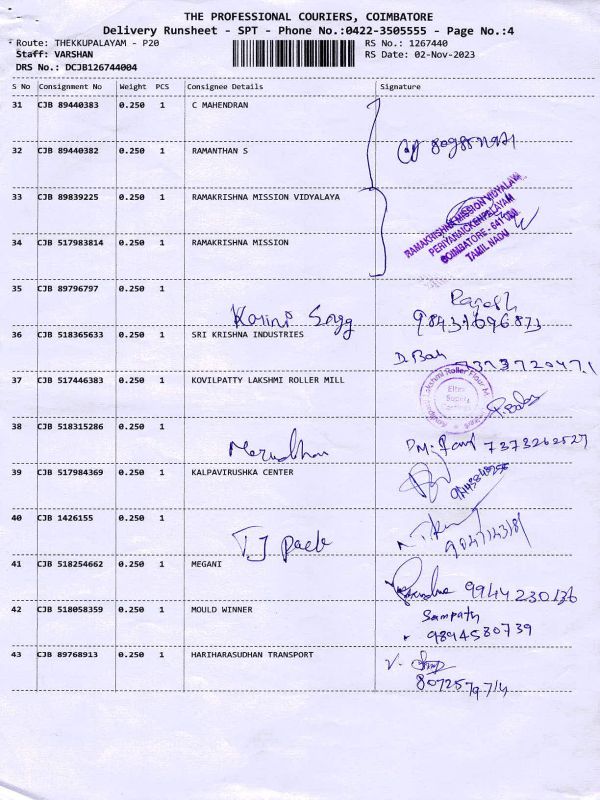 THE PROFESSIONAL COURIERS, COIMBATORE
Delivery Runsheet - SPT - Phone No.:0422-3505555 - Page No.:4
Route: THEKKUPALAYAM - P20 RS No.: 1267440
Staff: VARSHAN RS Date: 02-Nov-2023
DRS No.: DCJB126744004
S No Consignment No Weight PCS Consignee Details Signature
31 CJB 89440383 0.250 1 C MAHENDRAN
32 CJB 89440382 0.250 1 RAMANTHAN S
33 CJB 89839225 0.250 1 RAMAKRISHNA MISSION VIDYALAYA
RAMAKRISHNA MISSION VIDYALAYA
PERIYANAICKENPALAYAM
COIMBATORE - 641 020
TAMIL NADU
34 CJB 517983814 0.250 1 RAMAKRISHNA MISSION
35 CJB 89796797 0.250 1
Rajesh
36 CJB 518365633 0.250 1 SRI KRISHNA INDUSTRIES
37 CJB 517446383 0.250 1 KOVILPATTY LAKSHMI ROLLER MILL
Lakshmi Roller Flour
38 CJB 518315286 0.250 1
7373262527
39 CJB 517984369 0.250 1 KALPAVIRUSHKA CENTER
40 CJB 1426155 0.250 1
41 CJB 518254662 0.250 1 MEGANI
9944230136
42 CJB 518058359 0.250 1 MOULD WINNER
Sampath
9894580739
43 CJB 89768913 0.250 1 HARIHARASUDHAN TRANSPORT
8072579714